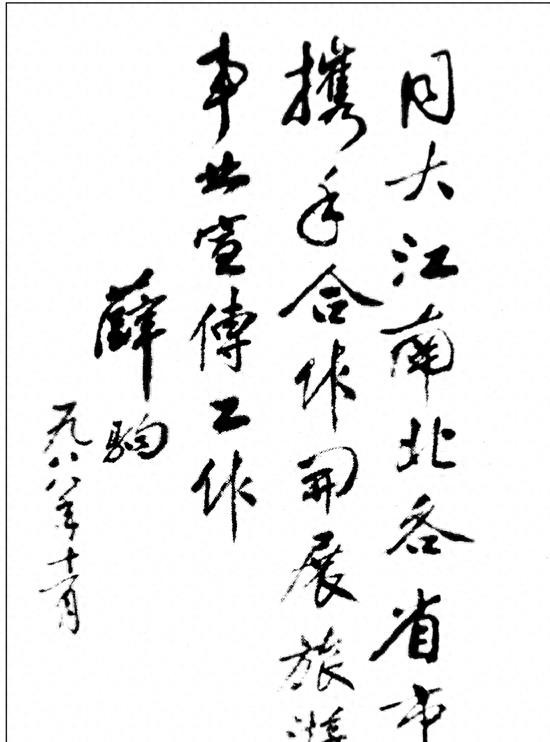 同大江南北各省市
携手合作開展旅游
事业宣傳工作
薛駒
一九八八年十一月